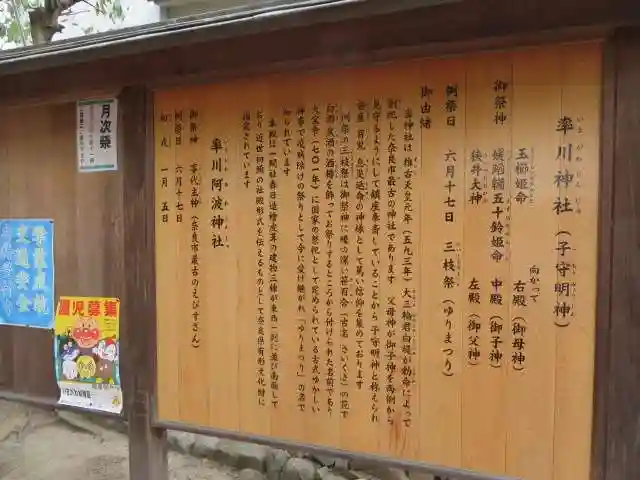 率川神社（子守明神）
いさがわじんじゃ
御祭神
玉櫛姫命 向かって 右殿（御母神）
媛蹈韛五十鈴姫命 中殿（御子神）
狭井大神 左殿（御父神）
例祭日 六月十七日 三枝祭（ゆりまつり）
御由緒
当神社は推古天皇元年（五九三年）大三輪君白堤が勅命によって
創祀した奈良市最古の神社であります 父母神が御子神を両側から
見守るようにして鎮座奉斎していることから子守明神と称えられ
安産 育児 息災延命の神様として篤い信仰を集めております
例祭の三枝祭は御祭神に縁の深い笹百合（古名 さいくさ）の花で
白酒 黒酒の酒樽を飾ってお祭りするところから付けられた名前であり
大宝令（七〇一年）に国家の祭祀として定められている古式ゆかしい
神事で疫病除けの祭りとして今に受け継がれ「ゆりまつり」の名で
知られています
本殿は一間社春日造檜皮葺の建物三棟が東西一列に並び南面して
おり近世初頭の社殿形式を伝えるものとして奈良県有形文化財に
指定されています
率川阿波神社
いさがわあわじんじゃ
御祭神 事代主神（奈良市最古のえびすさん）
例祭日 六月十七日
初戎 一月五日
月次祭
交通安全
園児募集